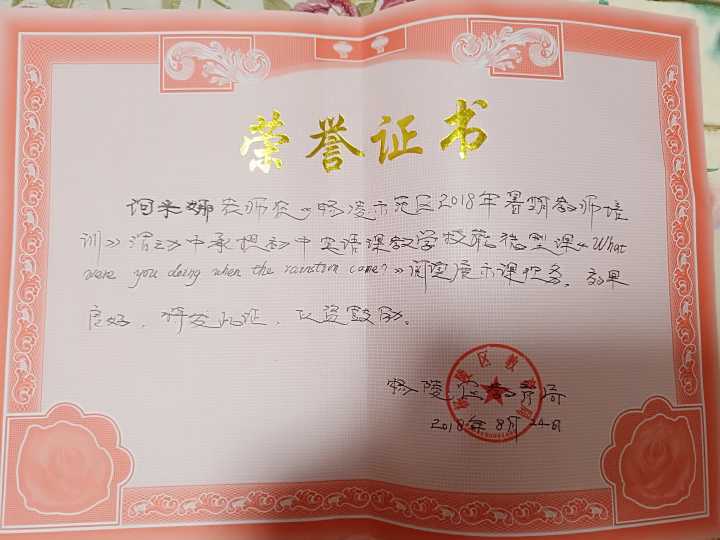 荣誉证书
老师在《杨凌示范区2018年暑期教师培
训》活动中承担初中英语课教学技能微型课《What
were you doing when the rainstorm came?》阅读展示课任务，效果
良好，特发此证，以资鼓励。
杨陵区教育局
2018年8月24日